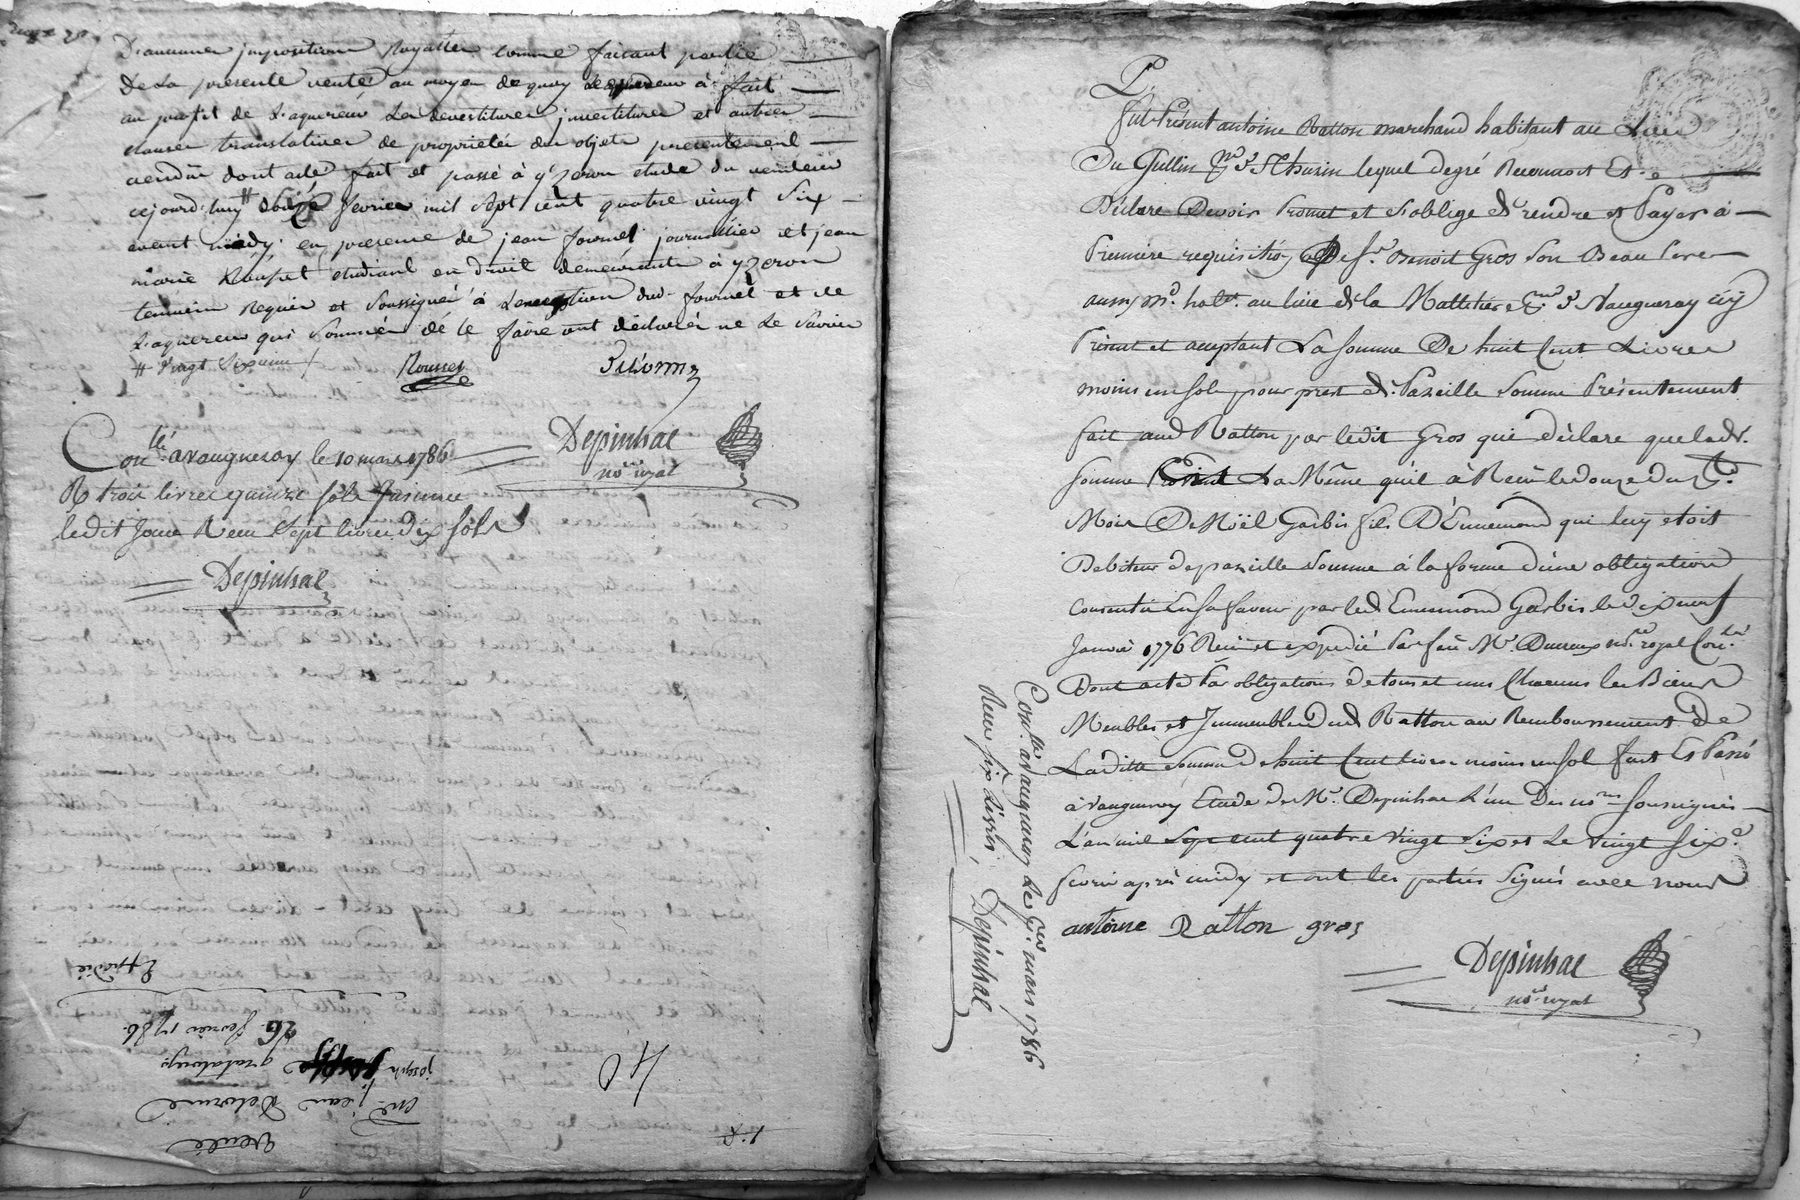 D'aucunes impositions Royalles comme faisant partie
De la presente vente au moyen de quoy le vendeur à fait
au profit de L'aquereur Les devestitures investitures et autres
clauses translatives de proprieté des objets presentement
vendus dont acte fait et passé à yzeron etude du
cejourd'huy # fevrier mil sept cent quatre vingt six
avant midy en presence de jean fournel journallier et jean
marie Rousset etudiant en droit demeurants à yzeron
temoins Requis et soussignés à L'exception dud. fournel et de
L'aquereur qui sommés de le faire ont déclarés ne le sçavoir
# vingt sixieme /
Rousset
Delorme
Depinhac
no.re royal
Con.lé à Vaugneray le 10 mars 1786
R trois livres quinze sols
ledit Jour Reçu sept livres dix sols
Depinhac
Expedié
26 fevrier 1786.
joseph
Jean Delorme
Vente
40
Fut Présent antoine Ratton marchand habitant au Lieu
Du Gullin lequel degré Reconnoit Et
Déclare Devoir Promet et s'oblige de rendre et Payer à
Première requisition De Sr. Benoit Gros Son Beau Pere
aussy md. habt. au lieu de la Mallitiere Vaugneray icy
Présent et acceptant La Somme De huit Cent Livres
moins un sol pour prest de Pareille Somme Présentement
fait aud Ratton par ledit Gros qui déclare que lade.
Somme La Même qu'il à Reçu le douze du
Mois De Noël Garbis fils D'Ennemond qui luy etoit
Debiteur de pareille Somme à la forme d'une obligation
Consentie En Sa faveur par led. Ennemond Garbis le dix neuf
Janvier 1776 Reçu et expedié Par feu Mr. no.re royal Con.lé
Dont acte Par obligations de tous et uns Chacuns les Biens
Meubles et Immeubles dud Ratton au Remboursement De
Laditte Somme de huit Cent livres moins un sol fait Et Passé
à Vaugneray Etude de Mr. Depinhac L'un Des nres. soussignés
L'an mil Sept cent quatre Vingt Six et Le Vingt Six.e
fevrier après midy et ont les parties signés avec nous
antoine Ratton gros
Depinhac
no.re royal
Con.lé à Vaugneray Le mars 1786
Reçu six Livres, Depinhac